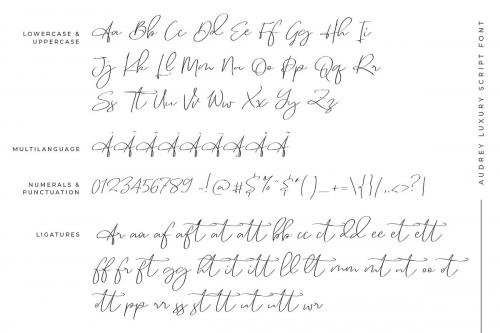 LOWERCASE &
UPPERCASE
Aa Bb Cc Dd Ee Ff Gg Hh Ii
Jj Kk Ll Mm Nn Oo Pp Qq Rr
Ss Tt Uu Vv Ww Xx Yy Zz
MULTILANGUAGE
NUMERALS &
PUNCTUATION
0123456789 ~!@#$%^&*()_+=\{}/,.<>?|
LIGATURES
Ar aa af aft at att bb cc ct dd ee et ett
ff fr ft gg ht it itt ll lt mm mt nt oo ot
ott pp rr ss st tt ut utt wr
AUDREY LUXURY SCRIPT FONT